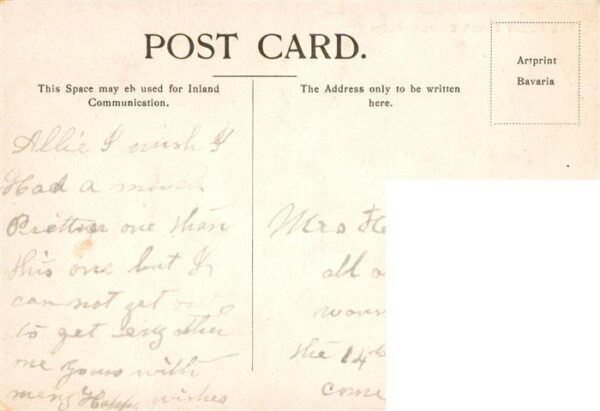 POST CARD.
This Space may eb used for Inland
Communication.
The Address only to be written
here.
Artprint
Bavaria
Allie I wish I
Had a much
Prettyer one than
this one but I
can not get out
to get eny other
one yours with
meny Happ wishes
Mrs
all
the 14
come